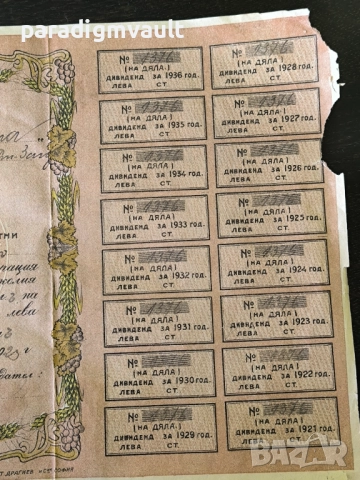 paradigmvault
№ 1376
(НА ДЯЛА)
ДИВИДЕНД ЗА 1936 ГОД.
ЛЕВА СТ.
№ 1376
(НА ДЯЛА)
ДИВИДЕНД ЗА 1928 ГОД.
ЛЕВА СТ.
№ 1376
(НА ДЯЛА)
ДИВИДЕНД ЗА 1935 ГОД.
ЛЕВА СТ.
№ 1376
(НА ДЯЛА)
ДИВИДЕНД ЗА 1927 ГОД.
ЛЕВА СТ.
№ 1376
(НА ДЯЛА)
ДИВИДЕНД ЗА 1934 ГОД.
ЛЕВА СТ.
№ 1376
(НА ДЯЛА)
ДИВИДЕНД ЗА 1926 ГОД.
ЛЕВА СТ.
№ 1376
(НА ДЯЛА)
ДИВИДЕНД ЗА 1933 ГОД.
ЛЕВА СТ.
№ 1376
(НА ДЯЛА)
ДИВИДЕНД ЗА 1925 ГОД.
ЛЕВА СТ.
№ 1376
(НА ДЯЛА)
ДИВИДЕНД ЗА 1932 ГОД.
ЛЕВА СТ.
№ 1376
(НА ДЯЛА)
ДИВИДЕНД ЗА 1924 ГОД.
ЛЕВА СТ.
№ 1376
(НА ДЯЛА)
ДИВИДЕНД ЗА 1931 ГОД.
ЛЕВА СТ.
№ 1376
(НА ДЯЛА)
ДИВИДЕНД ЗА 1923 ГОД.
ЛЕВА СТ.
№ 1376
(НА ДЯЛА)
ДИВИДЕНД ЗА 1930 ГОД.
ЛЕВА СТ.
№ 1376
(НА ДЯЛА)
ДИВИДЕНД ЗА 1922 ГОД.
ЛЕВА СТ.
№ 1376
(НА ДЯЛА)
ДИВИДЕНД ЗА 1929 ГОД.
ЛЕВА СТ.
№ 1376
(НА ДЯЛА)
ДИВИДЕНД ЗА 1921 ГОД.
ЛЕВА СТ.
на
лева
Т. ДРАГИЕВ И Сие СОФИЯ
BAZAR